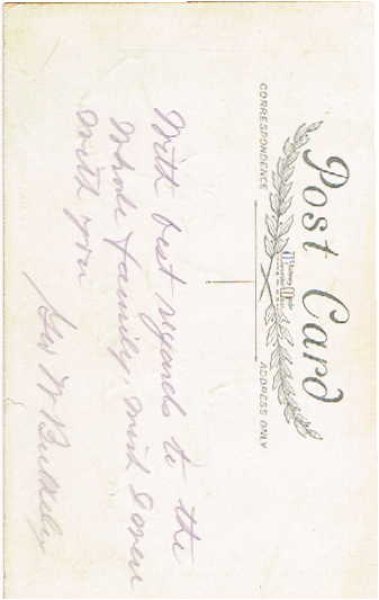 Post Card
CORRESPONDENCE
ADDRESS ONLY
With best regards to the
Whole family and
with you
Geo W Bulkeley